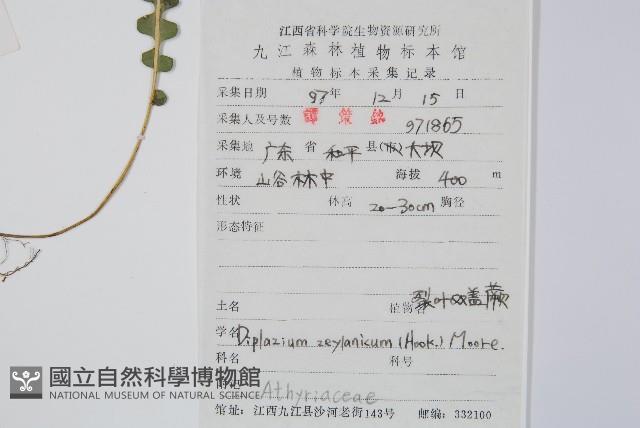 江西省科学院生物资源研究所
九江森林植物标本馆
植物标本采集记录
采集日期 97年 12月 15日
采集人及号数 譚策銘 971865
采集地 广东 省 和平 县(市) 大坝
环境 山谷林中 海拔 400 m
性状 体高 20—30cm 胸径
形态特征
土名 植物名 裂叶双盖蕨
学名 Diplazium zeylanicum (Hook.) Moore.
科名 科号
Athyriaceae
馆址：江西九江县沙河老街143号 邮编：332100
國立自然科學博物館
NATIONAL MUSEUM OF NATURAL SCIENCE